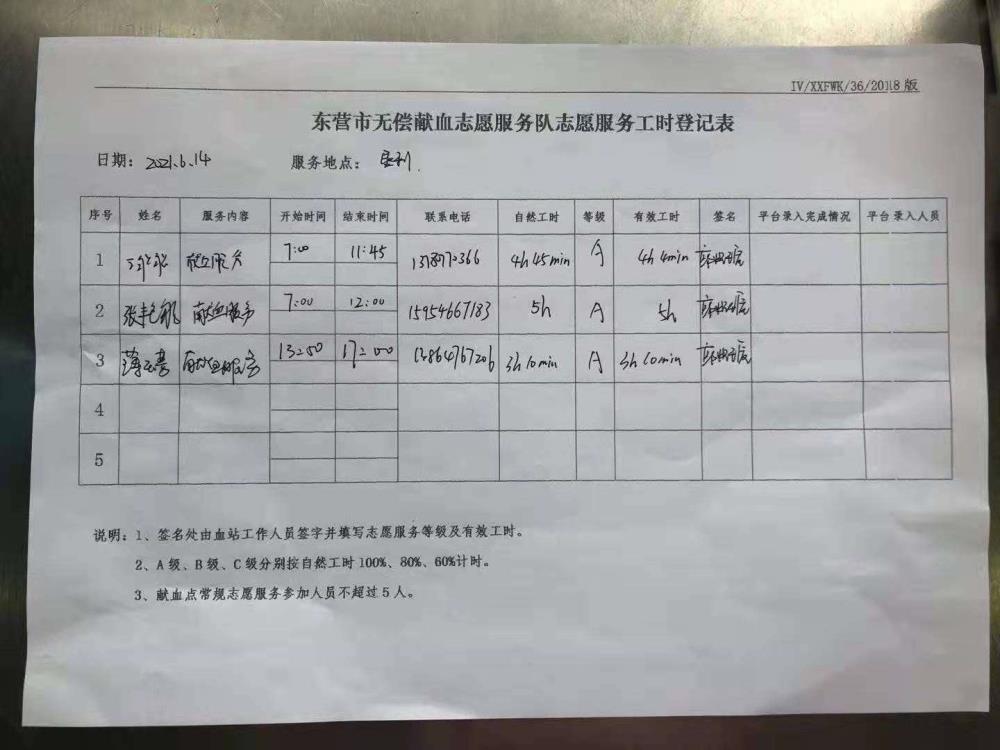 IV/XXFWK/36/2018版
东营市无偿献血志愿服务队志愿服务工时登记表
日期：2021.6.14 服务地点：
序号 姓名 服务内容 开始时间 结束时间 联系电话 自然工时 等级 有效工时 签名 平台录入完成情况 平台录入人员
1 献血服务 7:00 11:45 4h45min A 4h4min
2 献血服务 7:00 12:00 15954667183 5h A 5h
3 献血服务 13:50 17:00 13864767206 3h10min A 3h10min
4
5
说明：1、签名处由血站工作人员签字并填写志愿服务等级及有效工时。
2、A级、B级、C级分别按自然工时100%、80%、60%计时。
3、献血点常规志愿服务参加人员不超过5人。